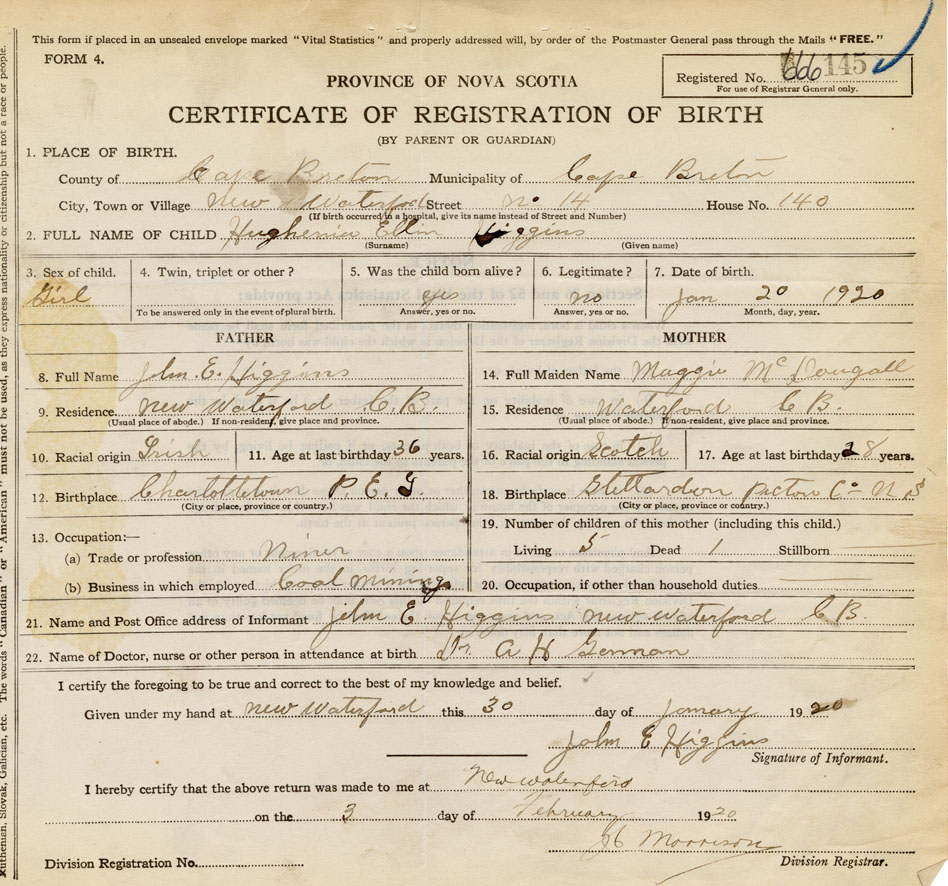 This form if placed in an unsealed envelope marked "Vital Statistics" and properly addressed will, by order of the Postmaster General pass through the Mails "FREE."
FORM 4.
Registered No. 666 145
For use of Registrar General only.
PROVINCE OF NOVA SCOTIA
CERTIFICATE OF REGISTRATION OF BIRTH
(BY PARENT OR GUARDIAN)
1. PLACE OF BIRTH.
County of Cape Breton Municipality of Cape Breton
City, Town or Village New Waterford Street No 14 House No. 140
(If birth occurred in a hospital, give its name instead of Street and Number)
2. FULL NAME OF CHILD Hughenia Ellin Higgins
(Surname) (Given name)
3. Sex of child. 4. Twin, triplet or other? 5. Was the child born alive? 6. Legitimate? 7. Date of birth.
Girl yes no Jan 20 1920
To be answered only in the event of plural birth. Answer, yes or no. Answer, yes or no. Month, day, year.
FATHER MOTHER
8. Full Name John E. Higgins 14. Full Maiden Name Maggie McDougall
9. Residence. New Waterford C.B. 15. Residence Waterford C B.
(Usual place of abode.) If non-resident, give place and province. (Usual place of abode.) If non-resident, give place and province.
10. Racial origin Irish 11. Age at last birthday 36 years. 16. Racial origin Scotch 17. Age at last birthday 28 years.
12. Birthplace Charlottetown P. E. I. 18. Birthplace Stellardon Pictou Co N S
(City or place, province or country.) (City or place, province or country.)
13. Occupation:— 19. Number of children of this mother (including this child.)
(a) Trade or profession Miner Living 5 Dead 1 Stillborn
(b) Business in which employed Coal Mining 20. Occupation, if other than household duties
21. Name and Post Office address of Informant John E Higgins New Waterford C B.
22. Name of Doctor, nurse or other person in attendance at birth Dr. A H
I certify the foregoing to be true and correct to the best of my knowledge and belief.
Given under my hand at New Waterford this 30 day of January 1920
John E Higgins
Signature of Informant.
I hereby certify that the above return was made to me at New Waterford
on the 3 day of February 1920
Morrison
Division Registration No. Division Registrar.
The words "Canadian" or "American" must not be used, as they express nationality or citizenship but not a race or people.
Ruthenian, Slovak, Galician, etc.